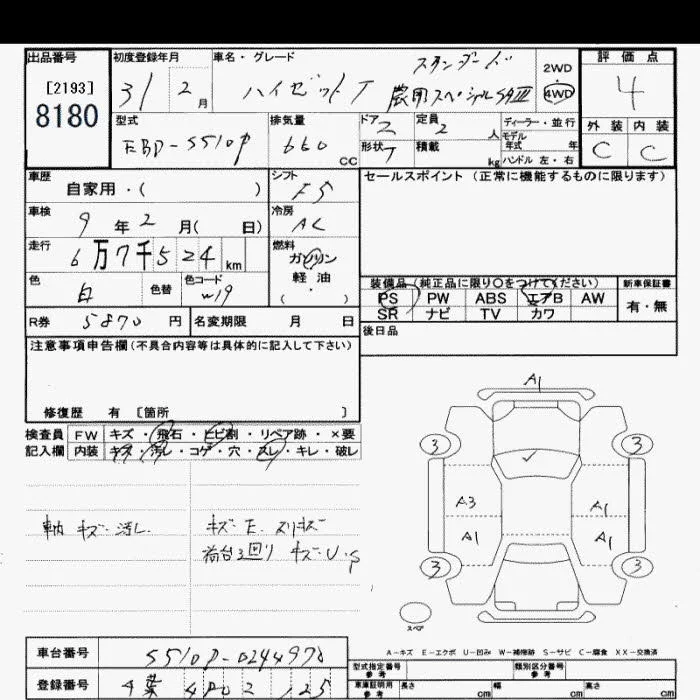 出品番号 初度登録年月 車名・グレード 評価点
[2193] 31 2月 ハイゼットT スタンダード 農用スペシャルSAⅢ 2WD 4WD 4
8180
型式 排気量 ドア 定員 ディーラー・並行 外装 内装
EBD-S510P 660 CC 2 2人 モデル年式 年 C C
形状 T 積載 kg ハンドル 左・右
車歴 シフト セールスポイント (正常に機能するものに限ります)
自家用・( ) F5
車検 冷房
9年2月( 日) AC
走行 燃料
6万7千524km ガソリン
色 色替 色コード 軽油
白 W19 ( ・ )
装備品(純正品に限り〇をつけてください) 新車保証書
PS PW ABS エアB AW 有・無
SR ナビ TV カワ
R券 5870円 名変期限 月 日 後日品
注意事項申告欄(不具合内容等は具体的に記入して下さい)
修復歴 有 〔箇所 〕
検査員 FW キズ・飛石・ヒビ割・リペア跡・×要
記入欄 内装 キズ・汚レ・コゲ・穴・スレ・キレ・破レ
A1
3 3
A3 A1
A1 A1
3 3
スペア
キズ・汚レ キズ・E スリキズ
荷台3回リ キズ・U・P
A-キズ E-エクボ U-凹み W-補修跡 S-サビ C-腐食 XX-交換済
車台番号 S510P-0244970
型式指定番号 参考 類別区分番号 参考
登録番号
車庫証明用 参考 長さ cm 幅 cm 高さ cm